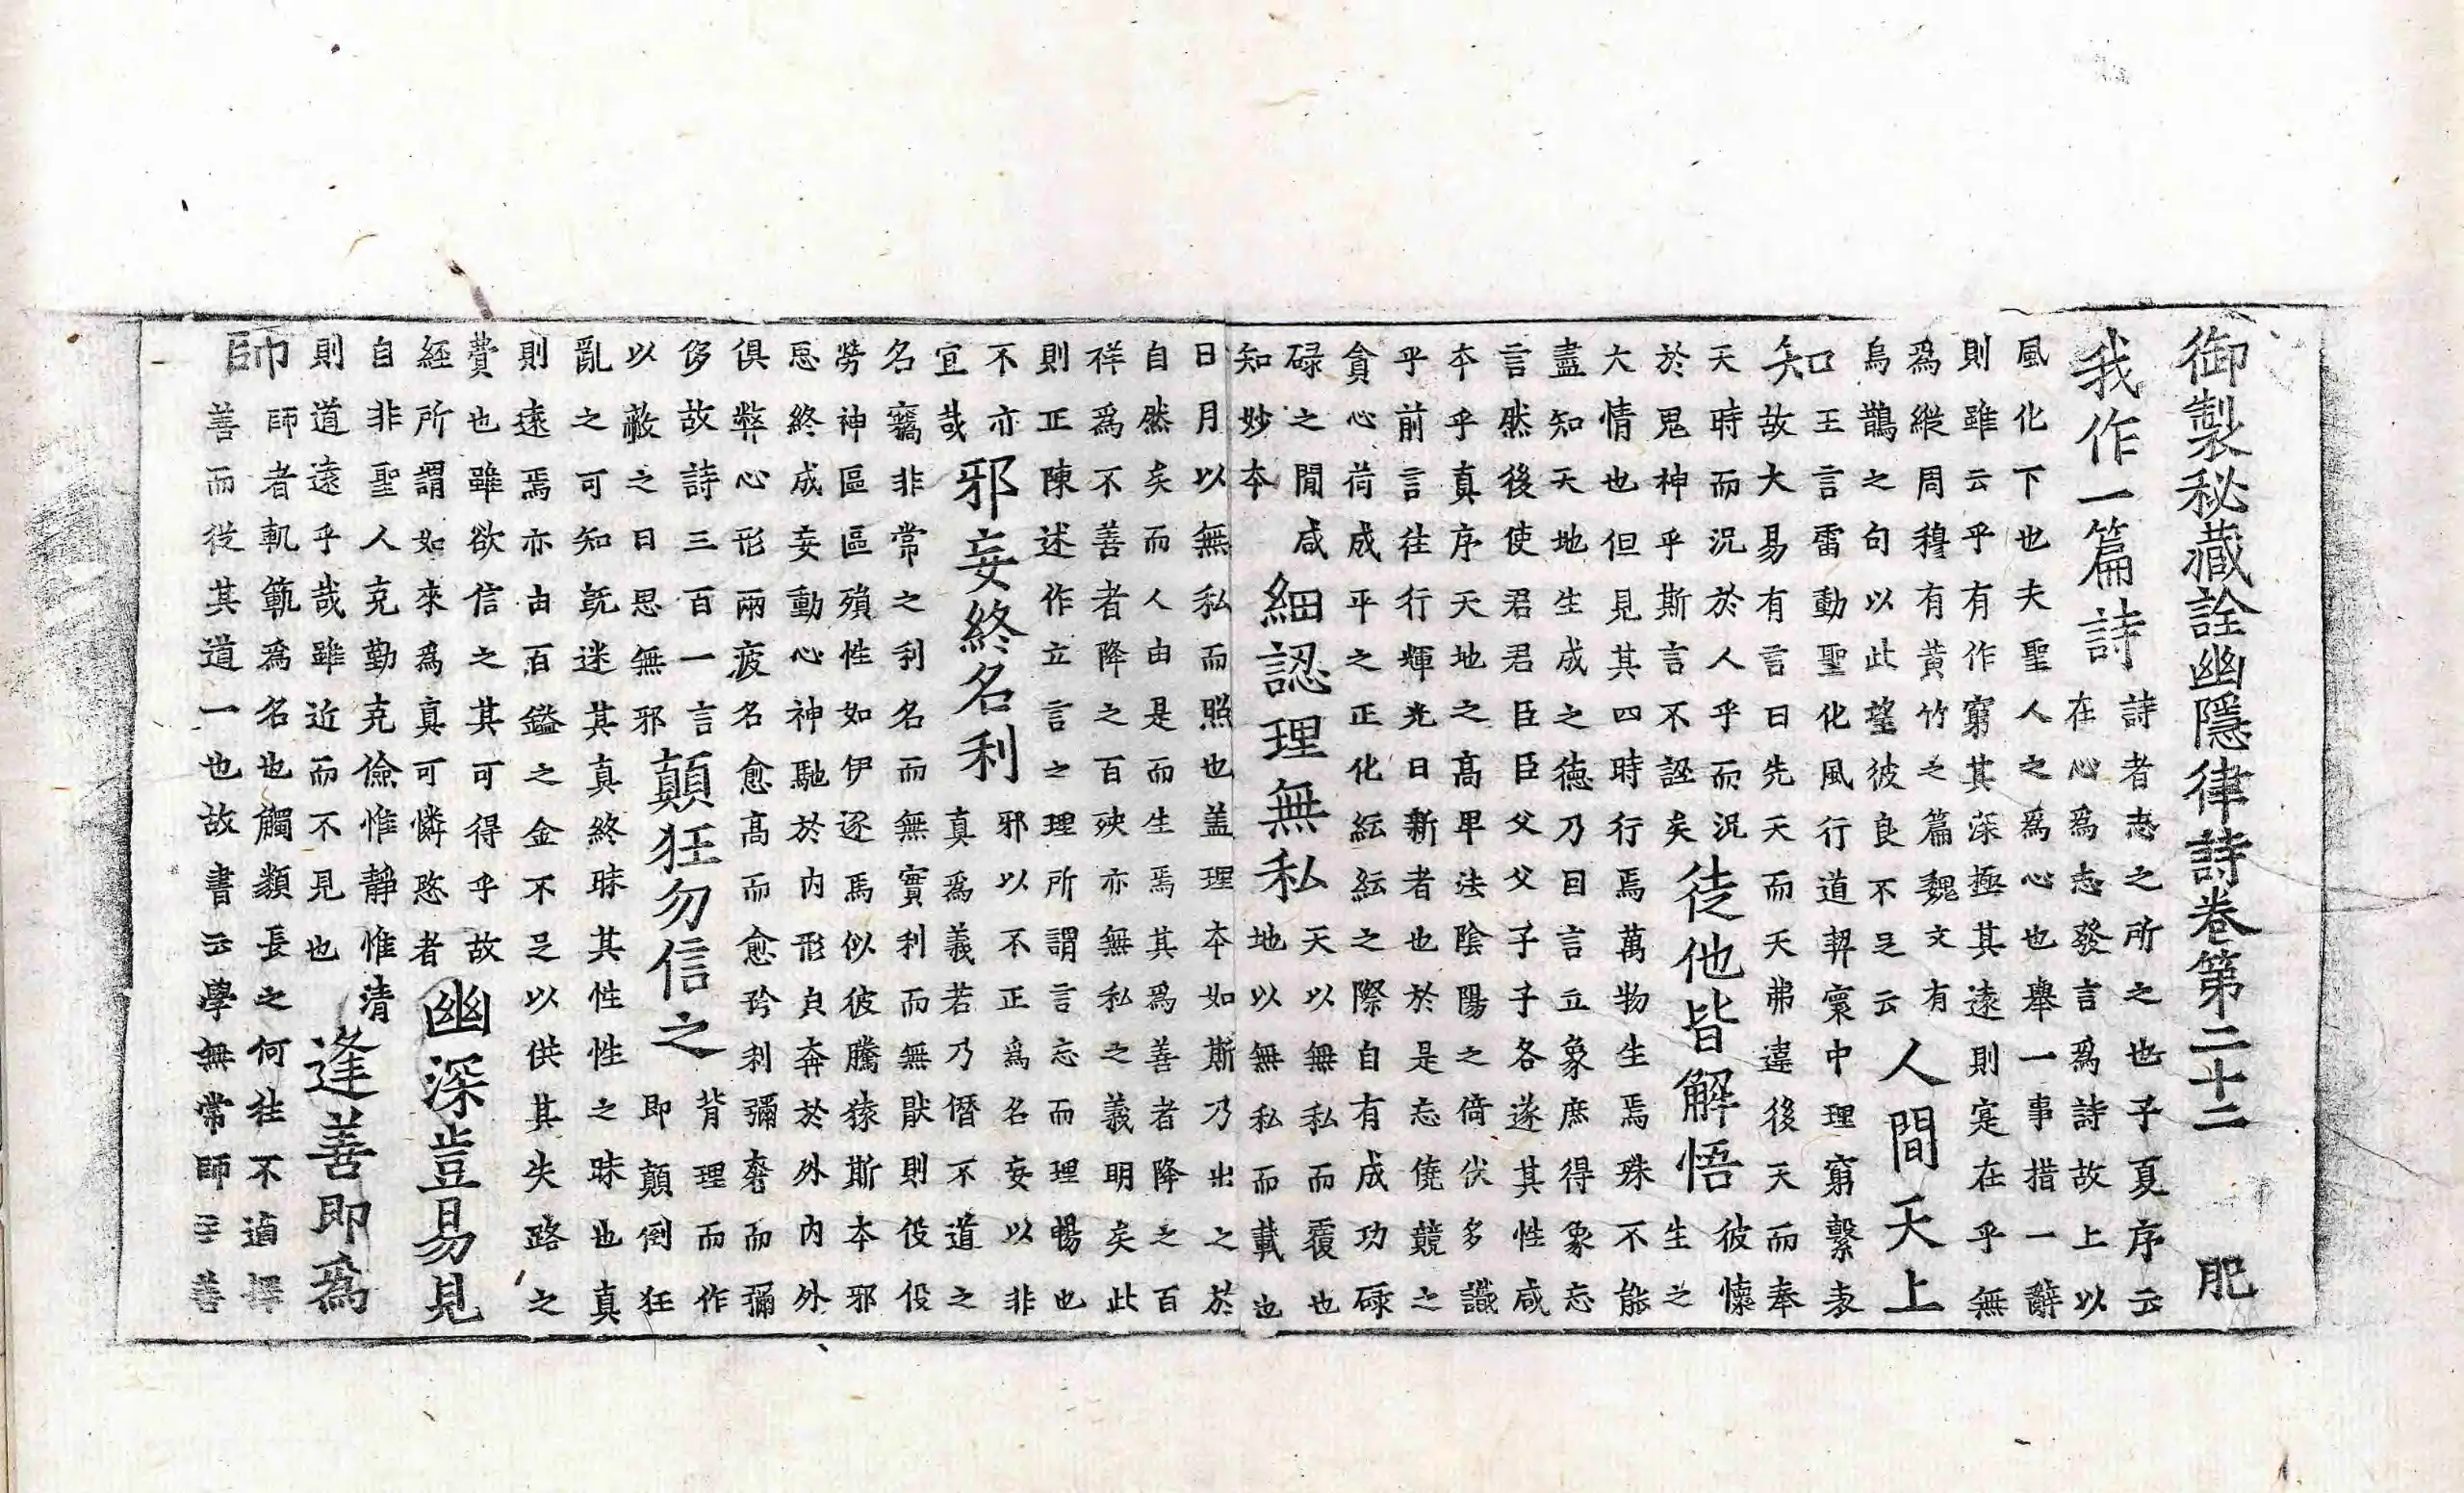 御製秘藏詮幽隱律詩卷第二十二 肥
我作一篇詩 詩者志之所之也子夏序云
在心爲志發言爲詩故上以
風化下也夫聖人之爲心也舉一事措一辭
則雖云乎有作窮其深極其遠則寔在乎無
爲縱周穆有黃竹之篇魏文有
烏鵲之句以此望彼良不足云 人間天上
知 王言雷動聖化風行道契寰中理窮繫表
故大易有言曰先天而天弗違後天而奉
天時而況於人乎而況
於鬼神乎斯言不誣矣 徒他皆解悟 彼懷
生之
大情也但見其四時行焉萬物生焉殊不能
盡知天地生成之德乃目言立象庶得象忘
言然後使君君臣臣父父子子各遂其性咸
本乎真序天地之高卑法陰陽之倚伏多識
乎前言往行輝光日新者也於是忘僥競之
貪心荷成平之正化紜紜之際自有成功碌
碌之間咸
知妙本 細認理無私 天以無私而覆也
地以無私而載也
日月以無私而照也盖理本如斯乃出之於
自然矣而人由是而生焉其爲善者降之百
祥爲不善者降之百殃亦無私之義明矣此
則正陳述作立言之理所謂言忘而理暢也
不亦
宜哉 邪妄終名利 邪以不正爲名妄以非
真爲義若乃僭不道之
名竊非常之利名而無實利而無猒則伇伇
勞神區區殞性如伊逐焉似彼騰猿斯本邪
惡終成妄動心神馳於内形貞奔於外内外
俱弊心形兩疲名愈高而愈矜利彌奢而彌
侈故詩三百一言
以蔽之曰思無邪 顛狂勿信之 背理而作
即顛倒狂
亂之可知旣迷其真終昧其性性之昧也真
則遠焉亦由百鎰之金不足以供其失路之
費也雖欲信之其可得乎故
經所謂如來爲真可憐愍者 幽深豈易見
自非聖人克勤克儉惟靜惟清
則道遠乎哉雖近而不見也 逢善即爲
師 師者軌範爲名也觸類長之何往不適擇
善而從其道一也故書云學無常師主善